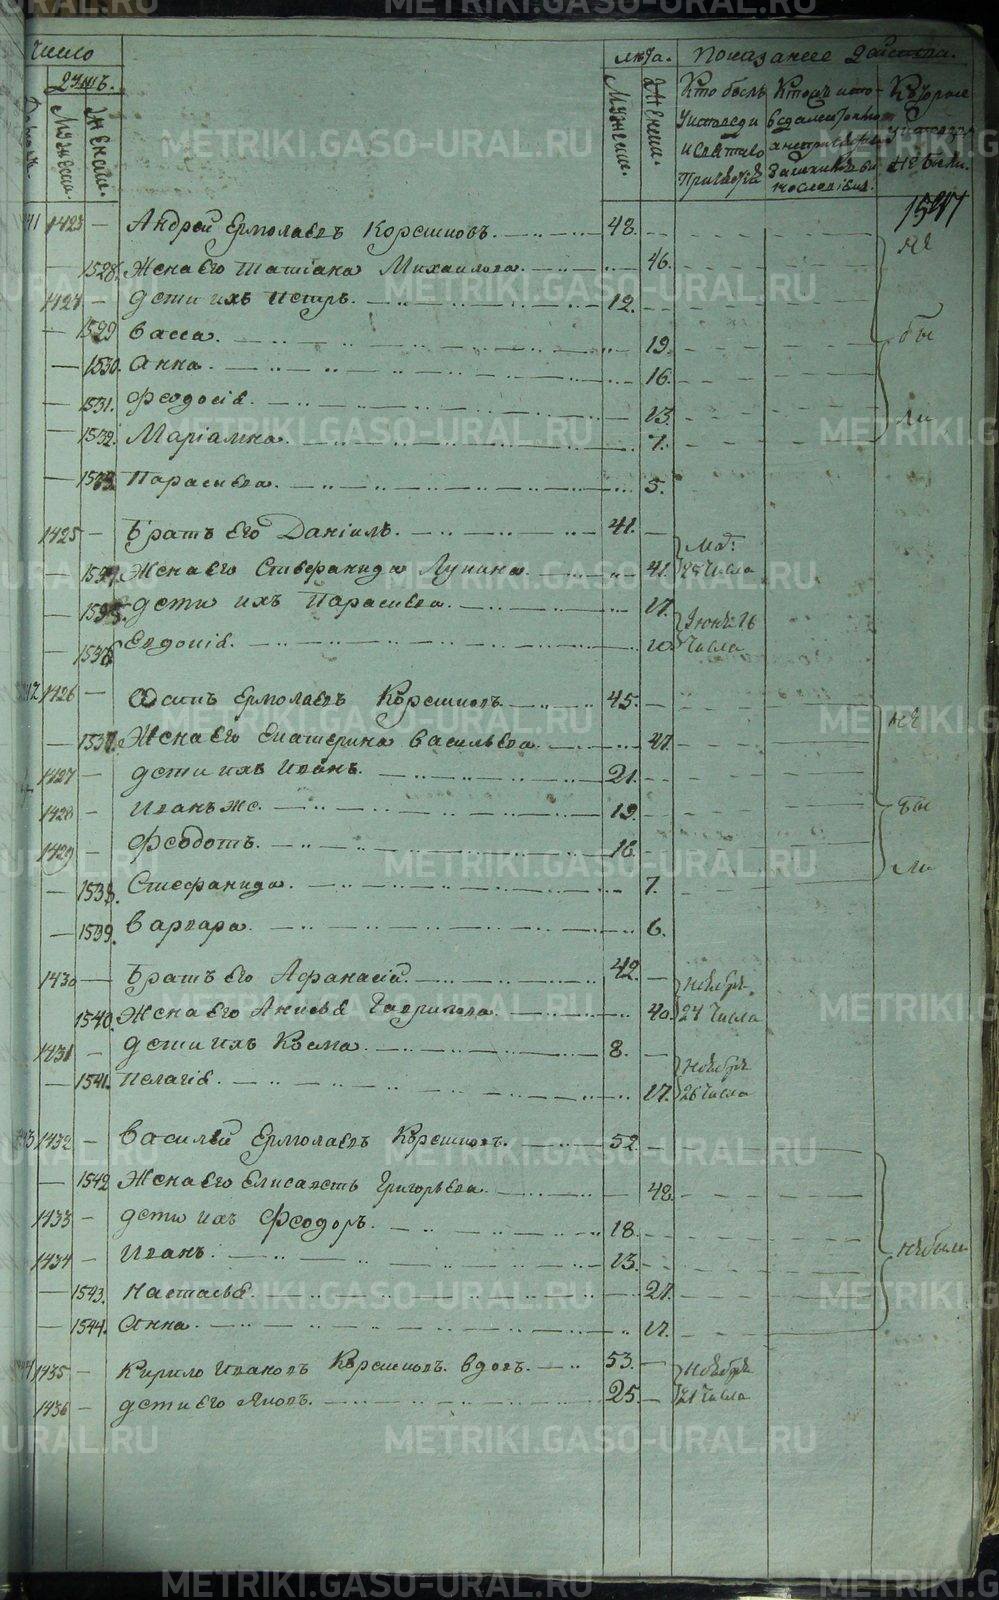 Число лѣта. Показание действа.
Душъ.
Мужеска. Женска. Мужеск. Женск. Кто былъ у исповеди и святаго причастія
не были.
1541
1423 — Андрей Ермолаевъ Корешковъ. 48.
1528. Жена его Татиана Михайлова 46.
1424 — дети ихъ Петръ. 12.
1529 Васса. 19.
1530. Анна. 16.
1531. Феодосія. 13.
1532. Маріамна. 7.
не бы ли
1533. Параскева. 5.
1425 — Братъ его Даніилъ. 41.
Жена его Стефанида Лукина 41. 25 Числа
1535. дети ихъ Параскева. 17. Іюня 26
1536 Евдокія. 10. Числа
1426 — Осипъ Ермолаевъ Корешковъ 45.
1537. Жена его Екатерина Васильева 47.
1427 — дети ихъ Иванъ. 21.
1428 — Иванъ же. 19.
1429 — Феодотъ. 16.
1538. Стефанида. 7.
1539. Варвара 6.
не бы ли
1430 — Братъ его Афанасій. 42. Ноября
1540. Жена его Анисья Гаврилова 40. 24 Числа
1431 — дети ихъ Козма 8. Ноября
1541. Пелагія. 17. 26 Числа
1432 — Василей Ермолаевъ Корешковъ. 52.
1542 Жена его Елисаветъ Григорьева 48.
1433 — дети ихъ Феодоръ. 18.
1434 — Иванъ. 13. не были
1543. Настасья. 21.
1544. Анна. 17.
1435 — Кирило Ивановъ Корешковъ. вдовъ. 53. Ноября
1436 — дети его Яковъ. 25. 21 Числа
METRIKI.GASO-URAL.RU